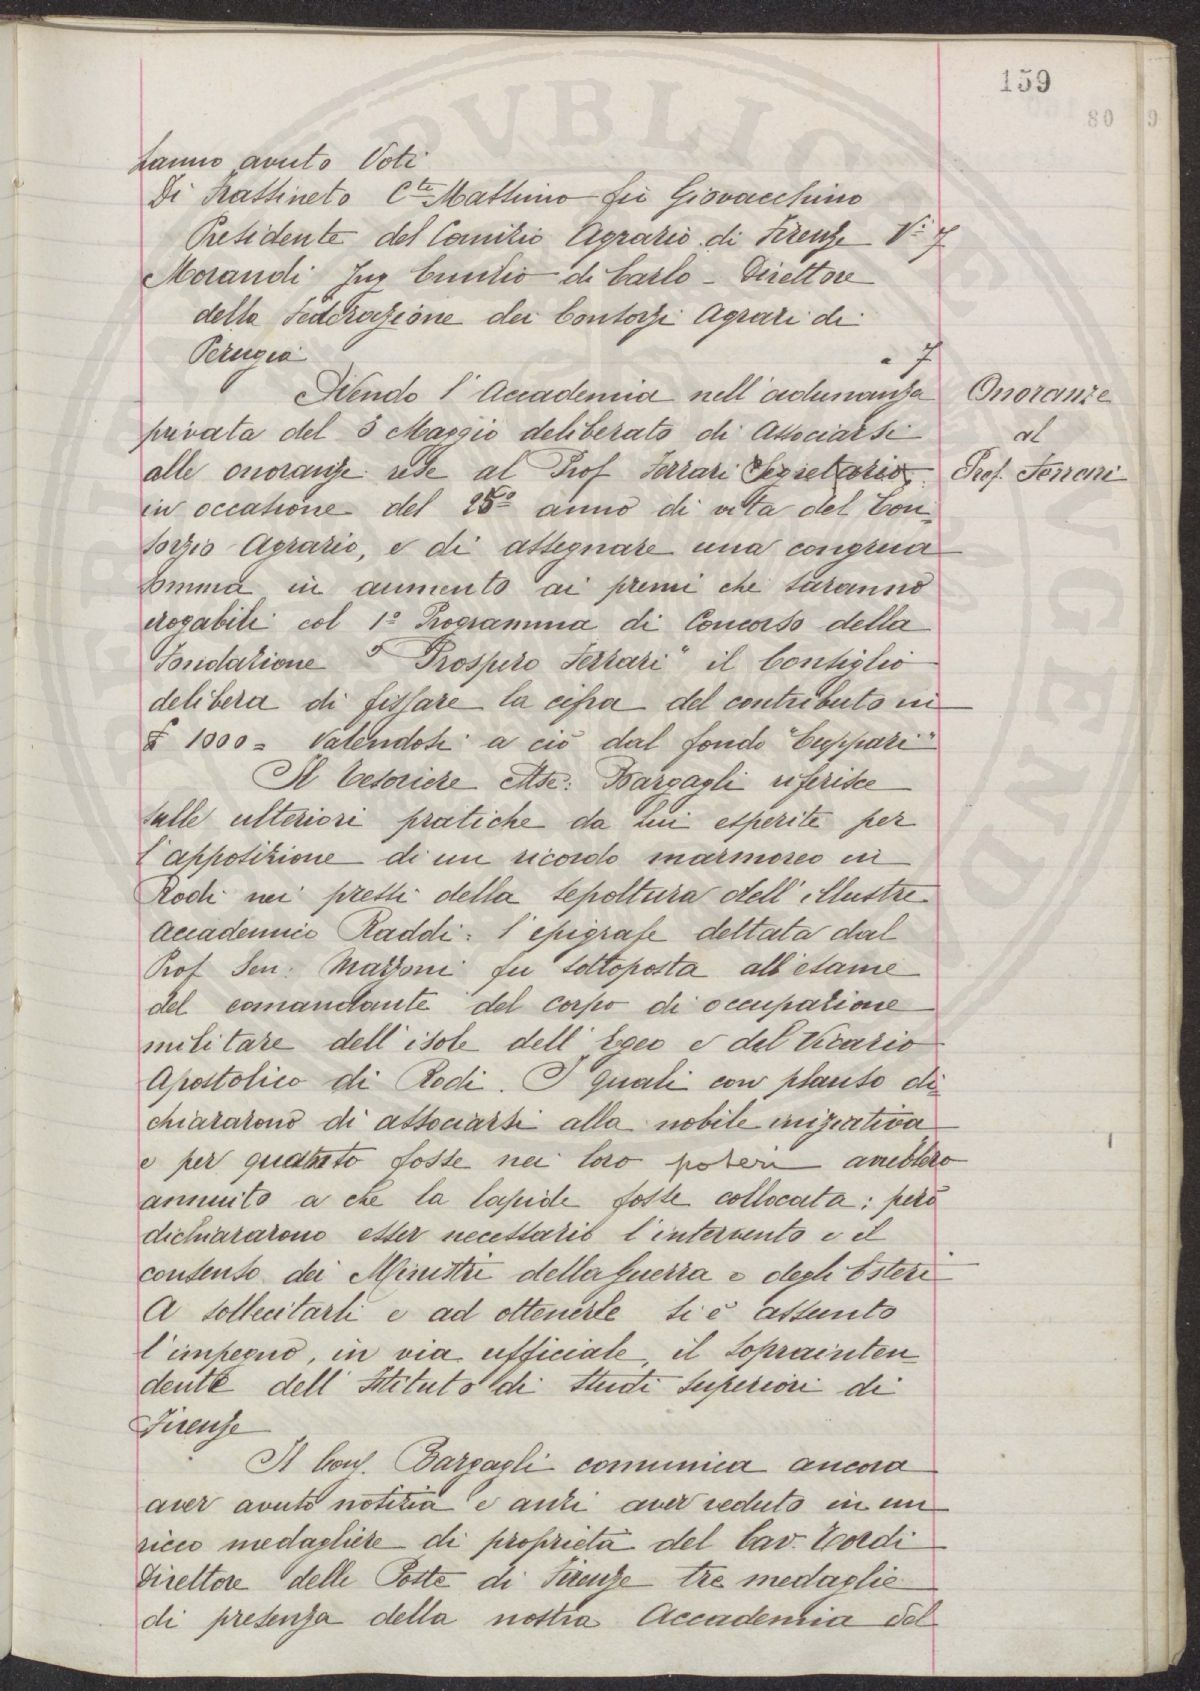 159
80
9
hanno avuto Voti
Di Frassineto C.te Massimo fu Giovacchino
Presidente del Comizio Agrario di Firenze V.i 7
Morandi Ing Emilio di Carlo - Direttore
della Federazione dei Consorzi Agrari di
Perugia " 7
Avendo l'Accademia nell'adunanza
privata del 3 Maggio deliberato di associarsi
alle onoranze rese al Prof Ferrari Segretario,
in occasione del 25º anno di vita del Con-
sorzio Agrario, e di assegnare una congrua
somma in aumento ai premi che saranno
erogabili col 1º Programma di Concorso della
Fondazione "Prospero Ferrari" il Consiglio
delibera di fissare la cifra del contributo in
£ 1000 = valendosi a ciò dal fondo "Cuppari"
Onoranze
al
Prof. Ferrari
Il Tesoriere Mse: Bargagli riferisce
sulle ulteriori pratiche da lui esperite per
l'apposizione di un ricordo marmoreo in
Rodi nei pressi della sepoltura dell'illustre
Accademico Raddi: l'epigrafe dettata dal
Prof Sen: Mazzoni fu sottoposta all'esame
del comandante del corpo di occupazione
militare dell'isole dell'Egeo e del Vicario
Apostolico di Rodi. I quali con plauso di-
chiararono di associarsi alla nobile iniziativa
e per quanto fosse nei loro poteri avrebbero
annuito a che la lapide fosse collocata; però
dichiararono esser necessario l'intervento e il
consenso dei Ministri della Guerra e degli Esteri
A sollecitarli e ad ottenerle si è assunto
l'impegno, in via ufficiale, il soprainten
dente dell'Istituto di Studi Superiori di
Firenze
Il Cons. Bargagli comunica ancora
aver avuto notizia e anzi aver veduto in un
ricco medagliere di proprietà del Cav. Tordi
Direttore delle Poste di Firenze tre medaglie
di presenza della nostra Accademia del